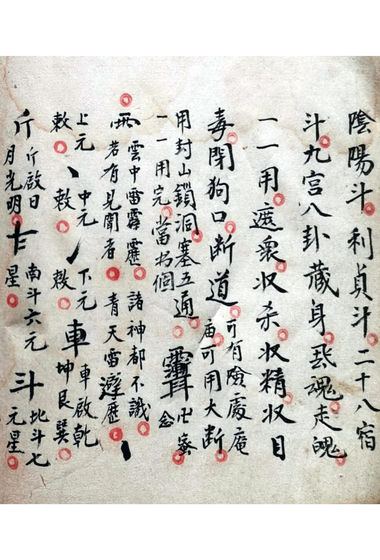 陰陽斗利貞斗二十八宿
斗九宮八卦藏身魂走魄
一一用遮衆收杀收精收目
毒閉狗口断道
可有險處庵
庙可用大断
用封山鎖洞塞五通
一一用完當为個
卍
念
雲中雷霹靂 諸神都不識
若有見聞者 青天雷霹歷
上元 中元 下元 車 車啟乾
敕 敕 敕 坤艮巽
斤 斤啟日 南斗六元 斗 北斗七
月光明 星 元星